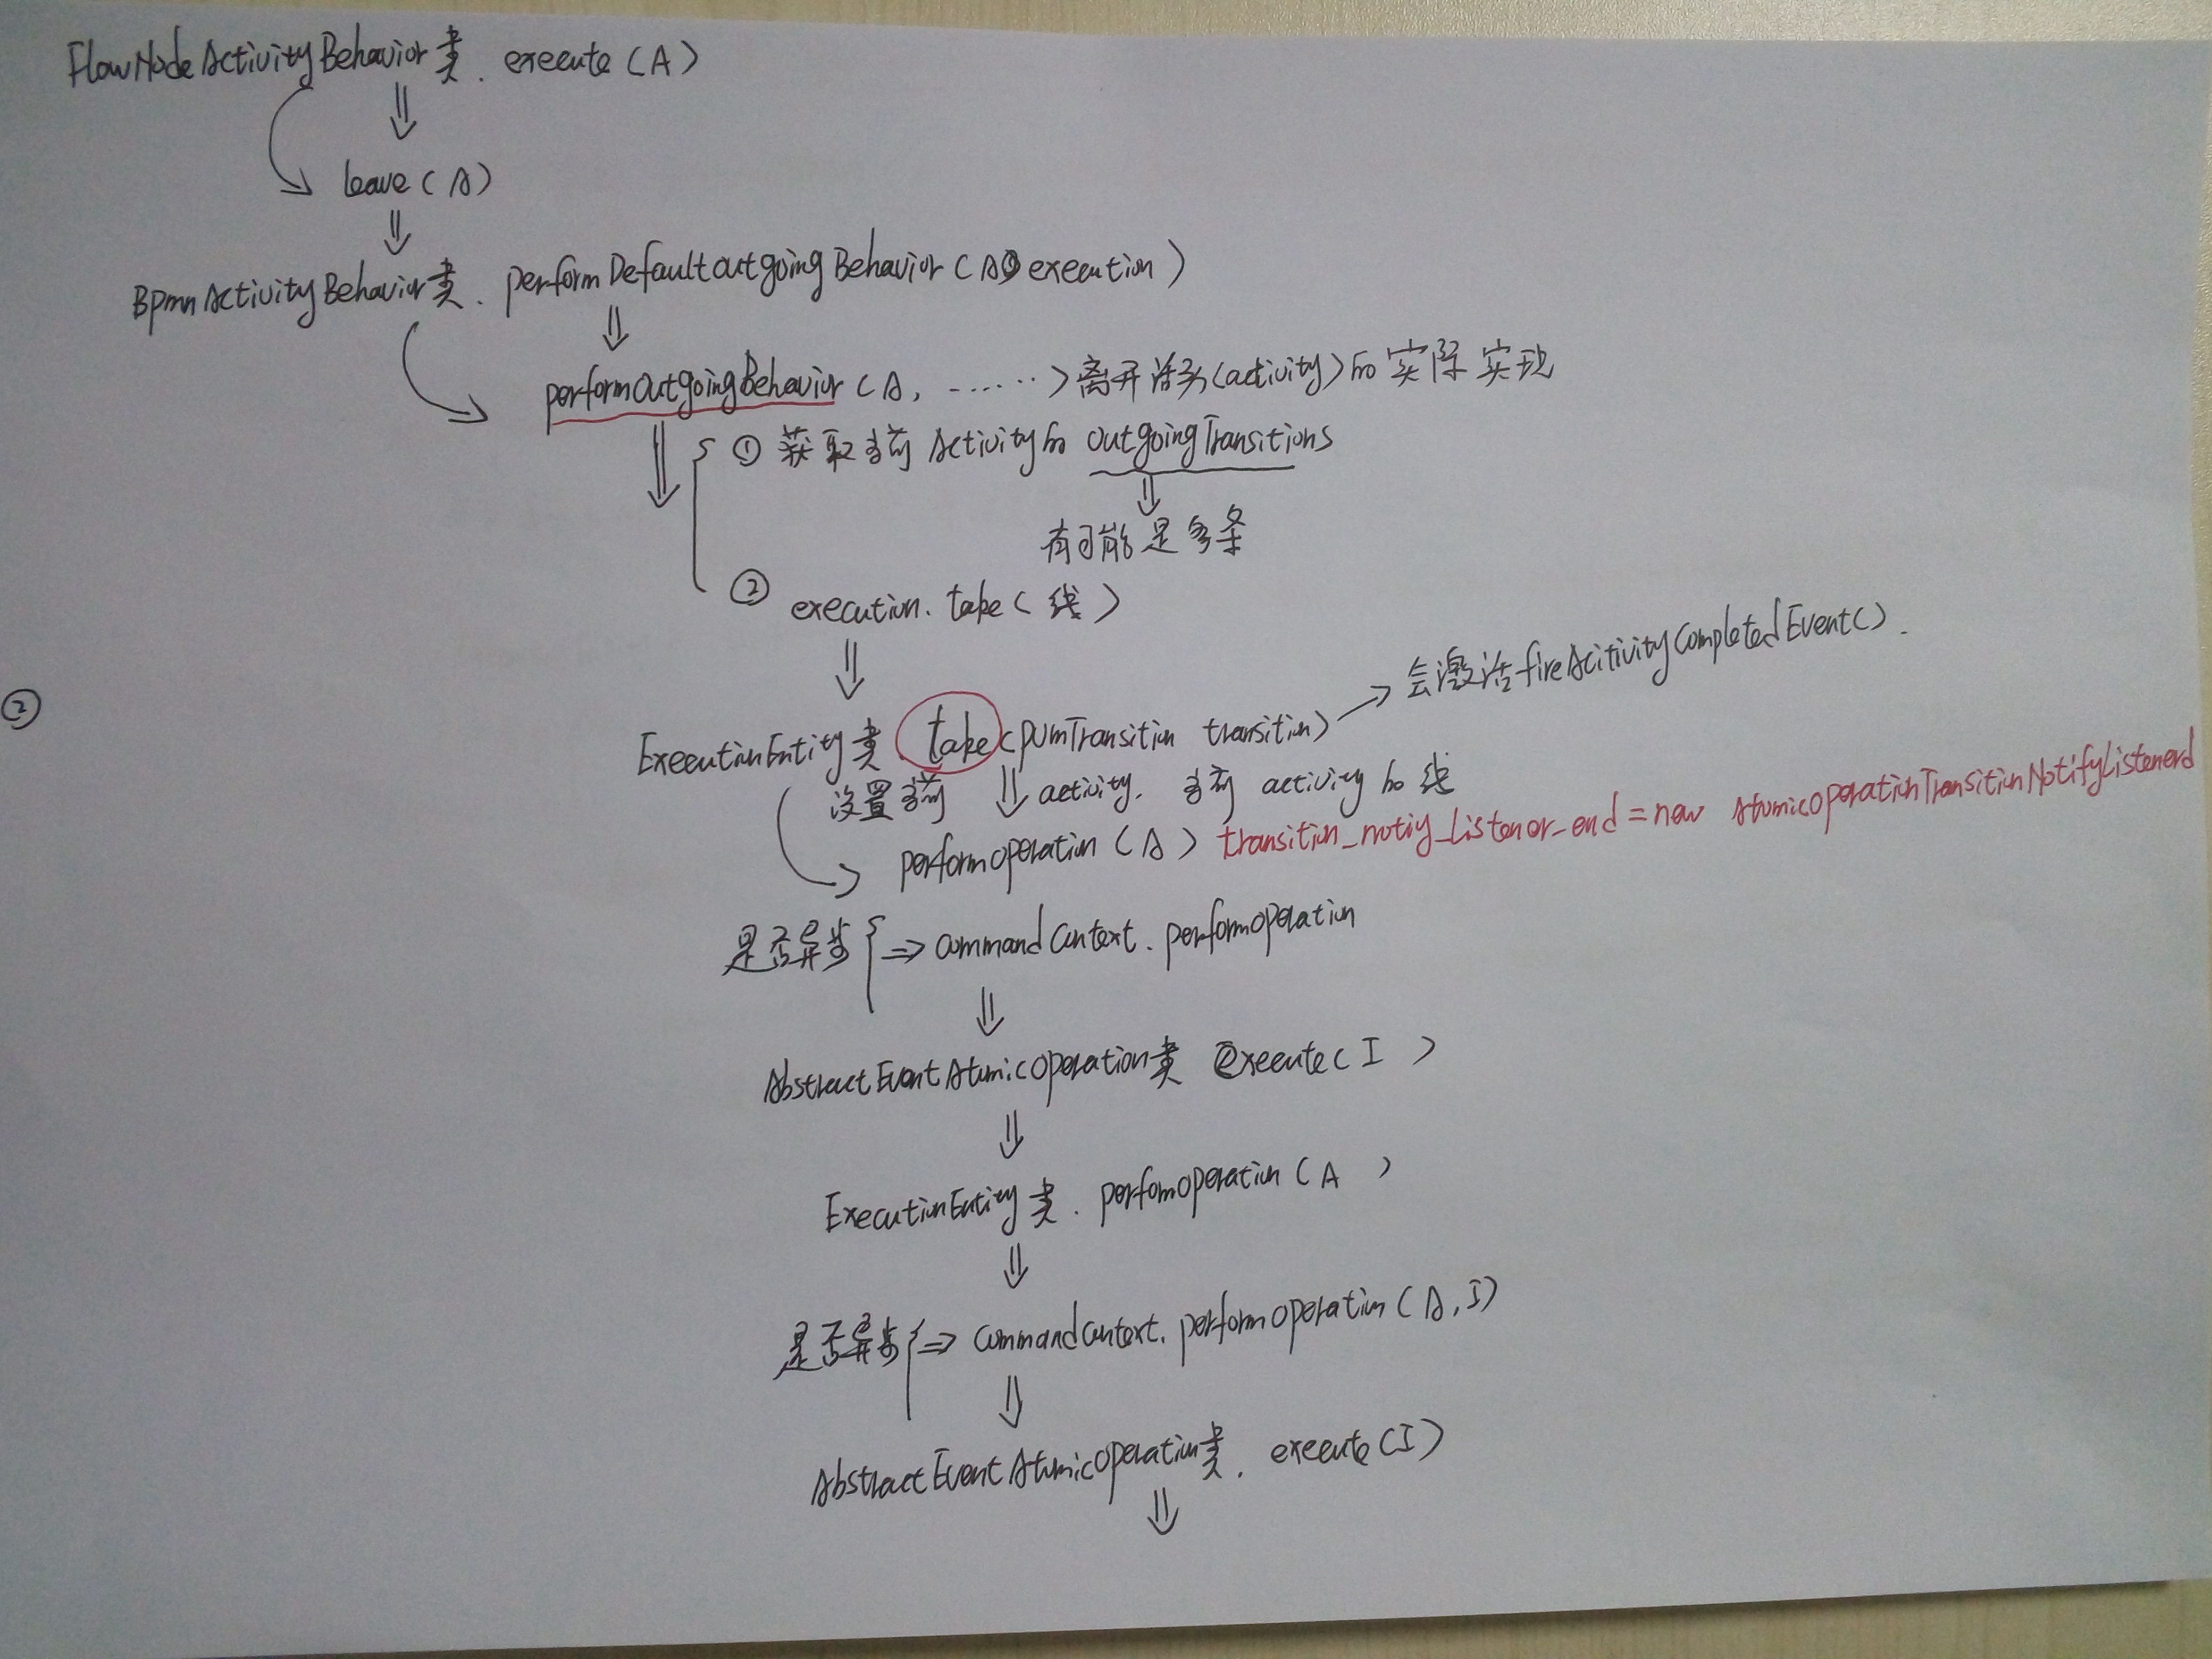 FlowNodeActivityBehavior类. execute(A)
leave(A)
BpmnActivityBehavior类. performDefaultOutgoingBehavior(A execution)
performOutgoingBehavior(A, ......)离开活动(activity)的实际实现
① 获取当前Activity的 outgoingTransitions
有可能是多条
② execution. take(线)
会激活fireAcitivityCompletedEvent().
②
ExecutionEntity类 take(pvmTransition transition)
设置当前 activity. 当前 activity的线
performoperation(A) transition_notiy_Listener_end=new AtomicOperationTransitionNotifyListenerd
是否异步 => commandContext. performoperation
AbstractEventAtomicOperation类 execute(I )
ExecutionEntity类. perfomoperation(A )
是否异步 => commandContext. performoperation(A,I)
AbstractEventAtomicOperation类. execute(I)